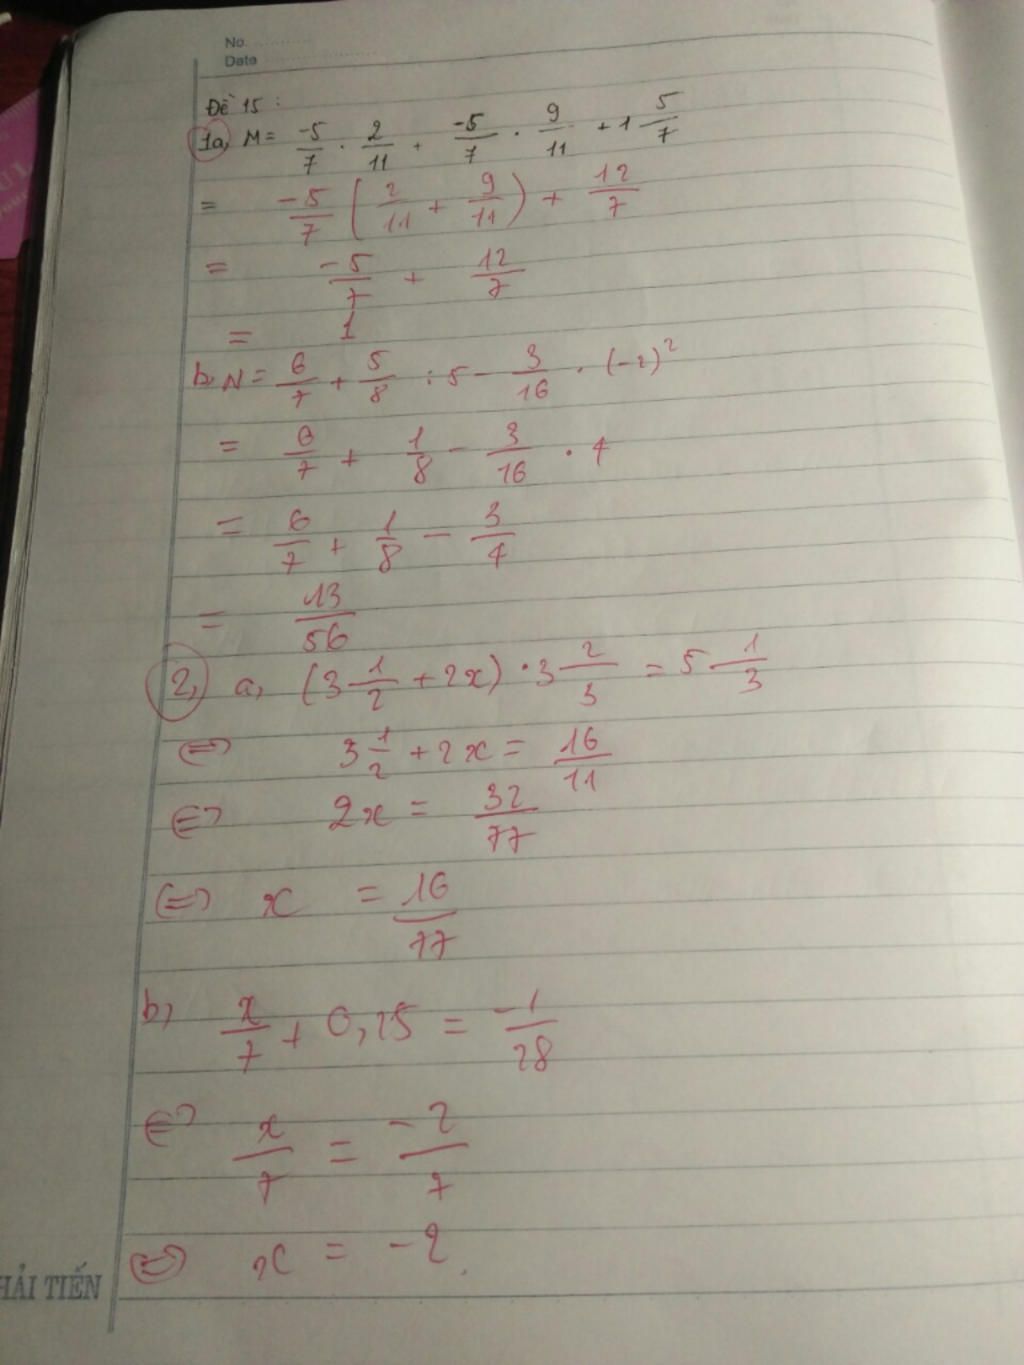 No.
Date
Đề 15 :
1a, M = -5/7 . 2/11 + -5/7 . 9/11 + 1 5/7
= -5/7 (2/11 + 9/11) + 12/7
= -5/7 + 12/7
= 1
b, N = 6/7 + 5/8 : 5 - 3/16 . (-2)²
= 6/7 + 1/8 - 3/16 . 4
= 6/7 + 1/8 - 3/4
= 13/56
2, a, (3 1/2 + 2x) . 3 2/3 = 5 1/3
⇔ 3 1/2 + 2x = 16/11
⇔ 2x = 32/77
⇔ x = 16/77
b) x/7 + 0,25 = -1/28
⇔ x/7 = -2/7
⇔ x = -2.
HẢI TIẾN